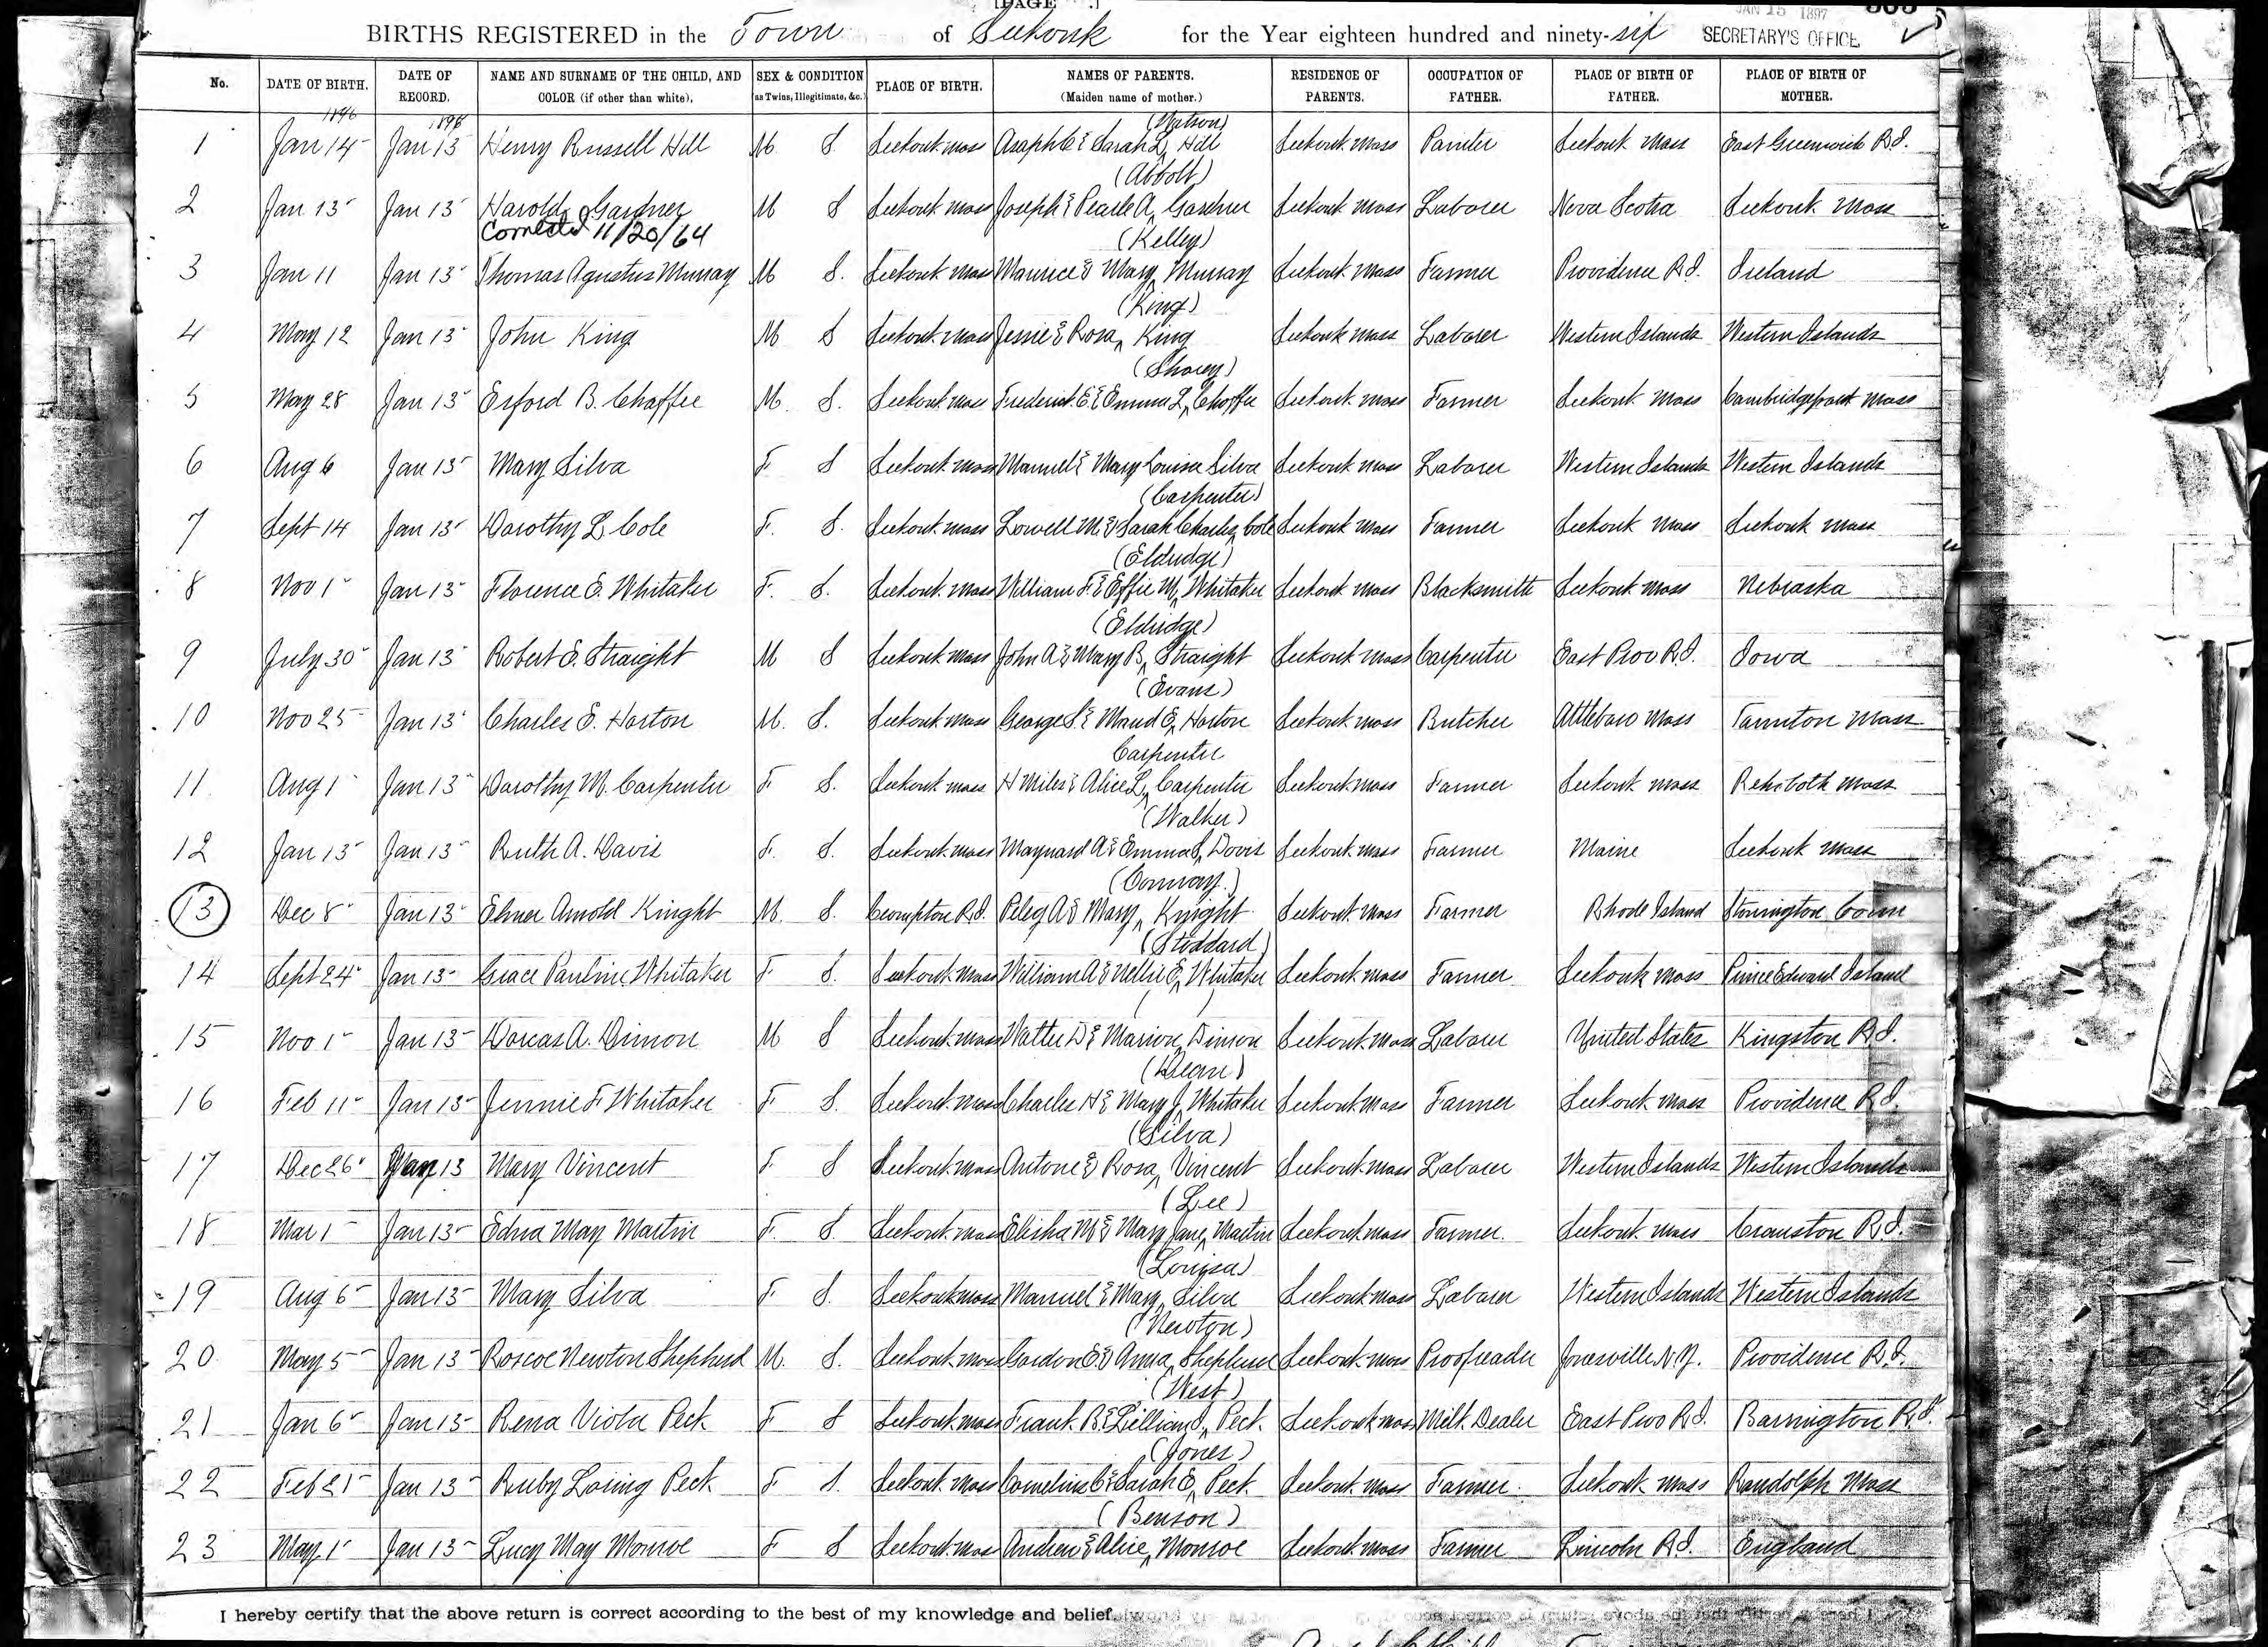 [PAGE .]
JAN 15 1897
BIRTHS REGISTERED in the Town of Seekonk for the Year eighteen hundred and ninety-six SECRETARY'S OFFICE
No. DATE OF BIRTH. DATE OF RECORD. NAME AND SURNAME OF THE CHILD, AND COLOR (if other than white). SEX & CONDITION (as Twins, Illegitimate, &c.) PLACE OF BIRTH. NAMES OF PARENTS. (Maiden name of mother.) RESIDENCE OF PARENTS. OCCUPATION OF FATHER. PLACE OF BIRTH OF FATHER. PLACE OF BIRTH OF MOTHER.
1896 (Watson)
1 Jan 14 Jan 13 Henry Russell Hill M S. Seekonk Mass Asaph C & Sarah L Hill Seekonk Mass Painter Seekonk Mass East Greenwich R.I.
(Abbott)
2 Jan 13 Jan 13 Harold Gardner M S Seekonk Mass Joseph & Pearle A Gardner Seekonk Mass Laborer Nova Scotia Seekonk Mass
Corrected 11/20/64
(Kelley)
3 Jan 11 Jan 13 Thomas Agustus Murray M S. Seekonk Mass Maurice & Mary Murray Seekonk Mass Farmer Providence R.I. Ireland
(King)
4 May 12 Jan 13 John King M S Seekonk Mass Jessie & Rosa King Seekonk Mass Laborer Western Islands Western Islands
(Shorey)
5 May 28 Jan 13 Esford B. Chaffee M. S. Seekonk Mass Frederick E. & Emma L Chaffee Seekonk Mass Farmer Seekonk Mass Cambridgeport Mass
6 Aug 6 Jan 13 Mary Silva F S Seekonk Mass Manuel & Mary Louisa Silva Seekonk Mass Laborer Western Islands Western Islands
(Carpenter)
7 Sept 14 Jan 13 Dorothy L Cole F. S. Seekonk Mass Lowell M. & Sarah Charles Cole Seekonk Mass Farmer Seekonk Mass Seekonk Mass
(Eldridge)
8 Nov 1 Jan 13 Florence E. Whitaker F. S. Seekonk Mass William F. & Effie M Whitaker Seekonk Mass Blacksmith Seekonk Mass Nebraska
(Eldridge)
9 July 30 Jan 13 Robert E. Straight M S Seekonk Mass John A & Mary B Straight Seekonk Mass Carpenter East Prov R.I. Iowa
(Evans)
10 Nov 25 Jan 13 Charles E. Horton M. S. Seekonk Mass George S. & Maud E Horton Seekonk Mass Butcher Attleboro Mass Taunton Mass
Carpenter
11 Aug 1 Jan 13 Dorothy M. Carpenter F S. Seekonk Mass H Miles & Alice L Carpenter Seekonk Mass Farmer Seekonk Mass Rehoboth Mass
(Walker)
12 Jan 13 Jan 13 Ruth A. Davis F. S. Seekonk Mass Maynard A & Emma S Davis Seekonk Mass Farmer Maine Seekonk Mass
(Conway.)
13 Dec 8 Jan 13 Elmer Arnold Kinght M. S. Crompton R.I. Peleg A & Mary Knight Seekonk Mass Farmer Rhode Island Stonington Conn
(Stoddard)
14 Sept 24 Jan 13 Grace Pauline Whitaker F S. Seekonk Mass William A & Nellie E Whitaker Seekonk Mass Farmer Seekonk Mass Prince Edward Island
( )
15 Nov 1 Jan 13 Dorcas A. Dimon M S Seekonk Mass Walter D & Marion Dimon Seekonk Mass Laborer United States Kingston R.I.
(Dean)
16 Feb 11 Jan 13 Jennie F Whitaker F S. Seekonk Mass Charles H & Mary J Whitaker Seekonk Mass Farmer Seekonk Mass Providence R.I.
(Silva)
17 Dec 26 Jan 13 Mary Vincent F S Seekonk Mass Antone & Rosa Vincent Seekonk Mass Laborer Western Islands Western Islands
(Lee)
18 Mar 1 Jan 13 Edna May Martin F S. Seekonk Mass Elisha M & Mary Jane Martin Seekonk Mass Farmer. Seekonk Mass Cranston R.I.
(Louisa)
19 Aug 6 Jan 13 Mary Silva F S. Seekonk Mass Manuel & Mary Silva Seekonk Mass Laborer Western Islands Western Islands
(Newton)
20 May 5 Jan 13 Roscoe Newton Shepherd M. S. Seekonk Mass Gordon E. & Anna Shepherd Seekonk Mass Proofreader Jonesville N.Y. Providence R.I.
(West)
21 Jan 6 Jan 13 Rena Viola Peck F S Seekonk Mass Frank B. & Lillian S. Peck Seekonk Mass Milk Dealer East Prov R.I. Barrington R.I.
(Jones)
22 Feb 21 Jan 13 Ruby Loring Peck F S. Seekonk Mass Cornelius C & Sarah E Peck Seekonk Mass Farmer Seekonk Mass Randolph Mass
(Benson)
23 May 1 Jan 13 Lucy May Monroe F S Seekonk Mass Andrew & Alice Monroe Seekonk Mass Farmer Lincoln R.I. England
I hereby certify that the above return is correct according to the best of my knowledge and belief.